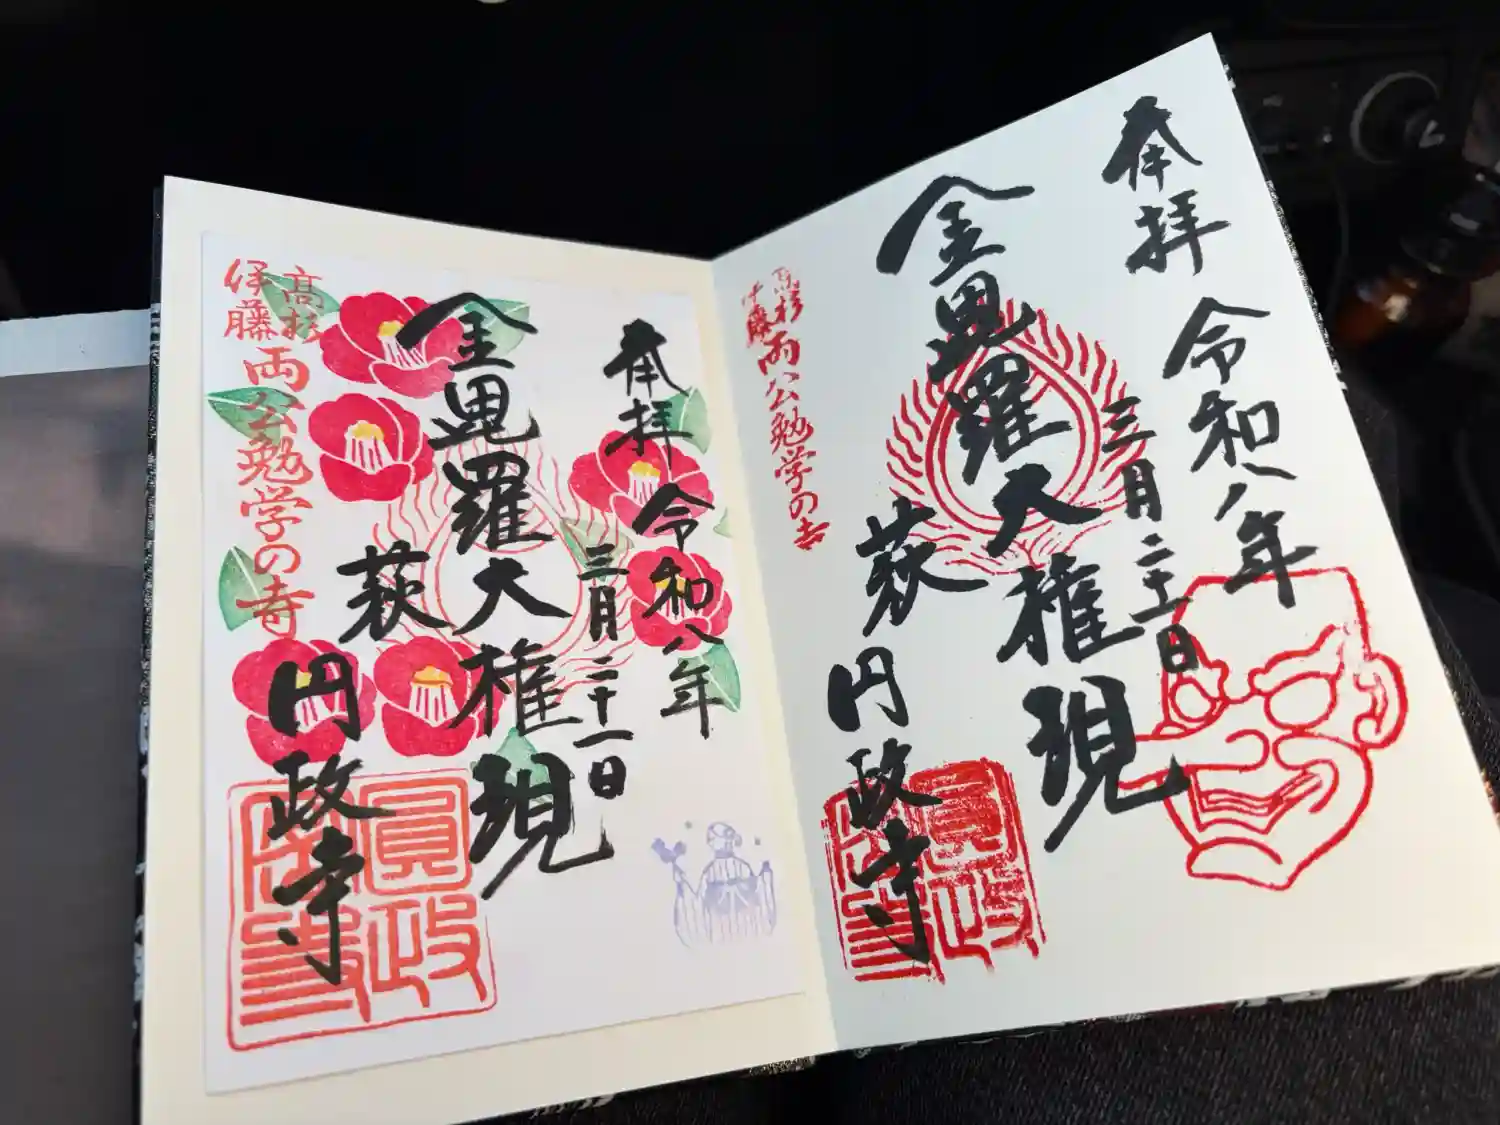 奉拝
令和八年
三月二十一日
金毘羅大権現
萩
円政寺
高杉
伊藤
両公勉学の寺
圓政寺
奉拝
令和八年
三月二十一日
金毘羅大権現
萩
円政寺
高杉
伊藤
両公勉学の寺
圓政寺